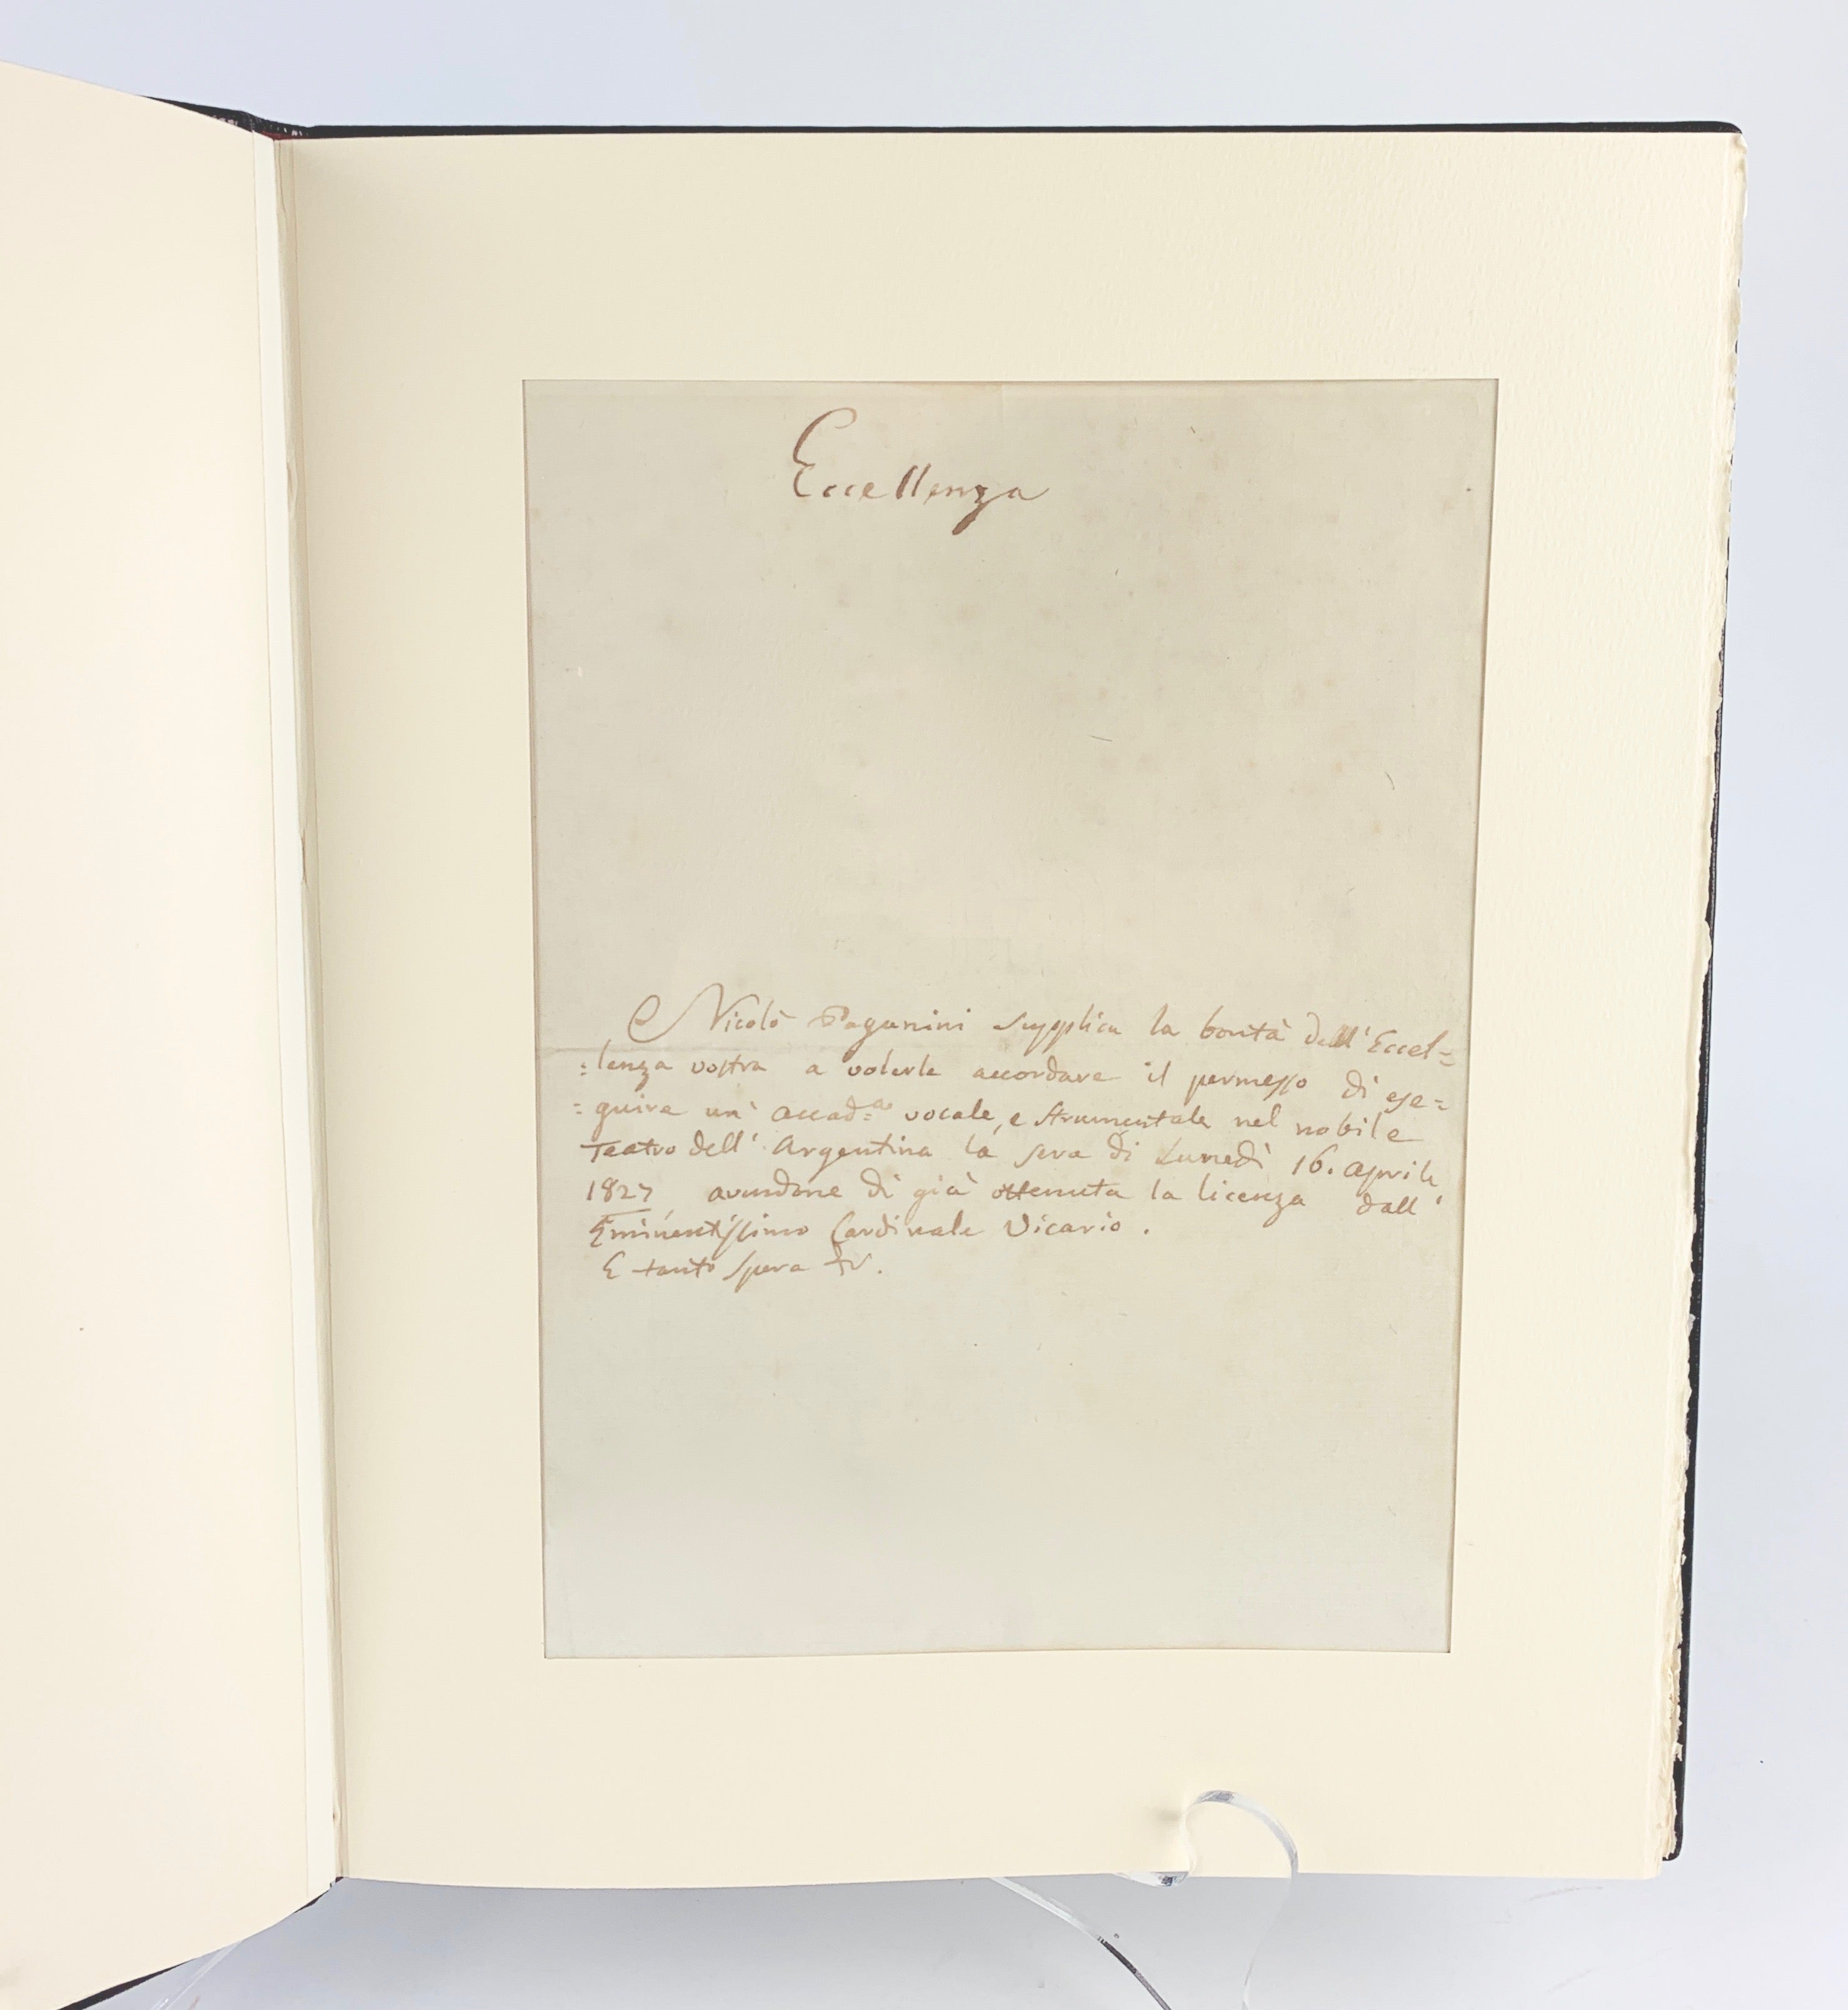 Eccellenza
Nicolò Paganini supplica la bontà dell' Eccel=
=lenza vostra a volerle accordare il permesso di ese=
=guire un' accad:a vocale, e strumentale nel nobile
Teatro dell' Argentina la sera di Lunedì 16. aprile
1827, avendone di già ottenuta la licenza dall'
Eminentissimo Cardinale Vicario.
E tanto spera